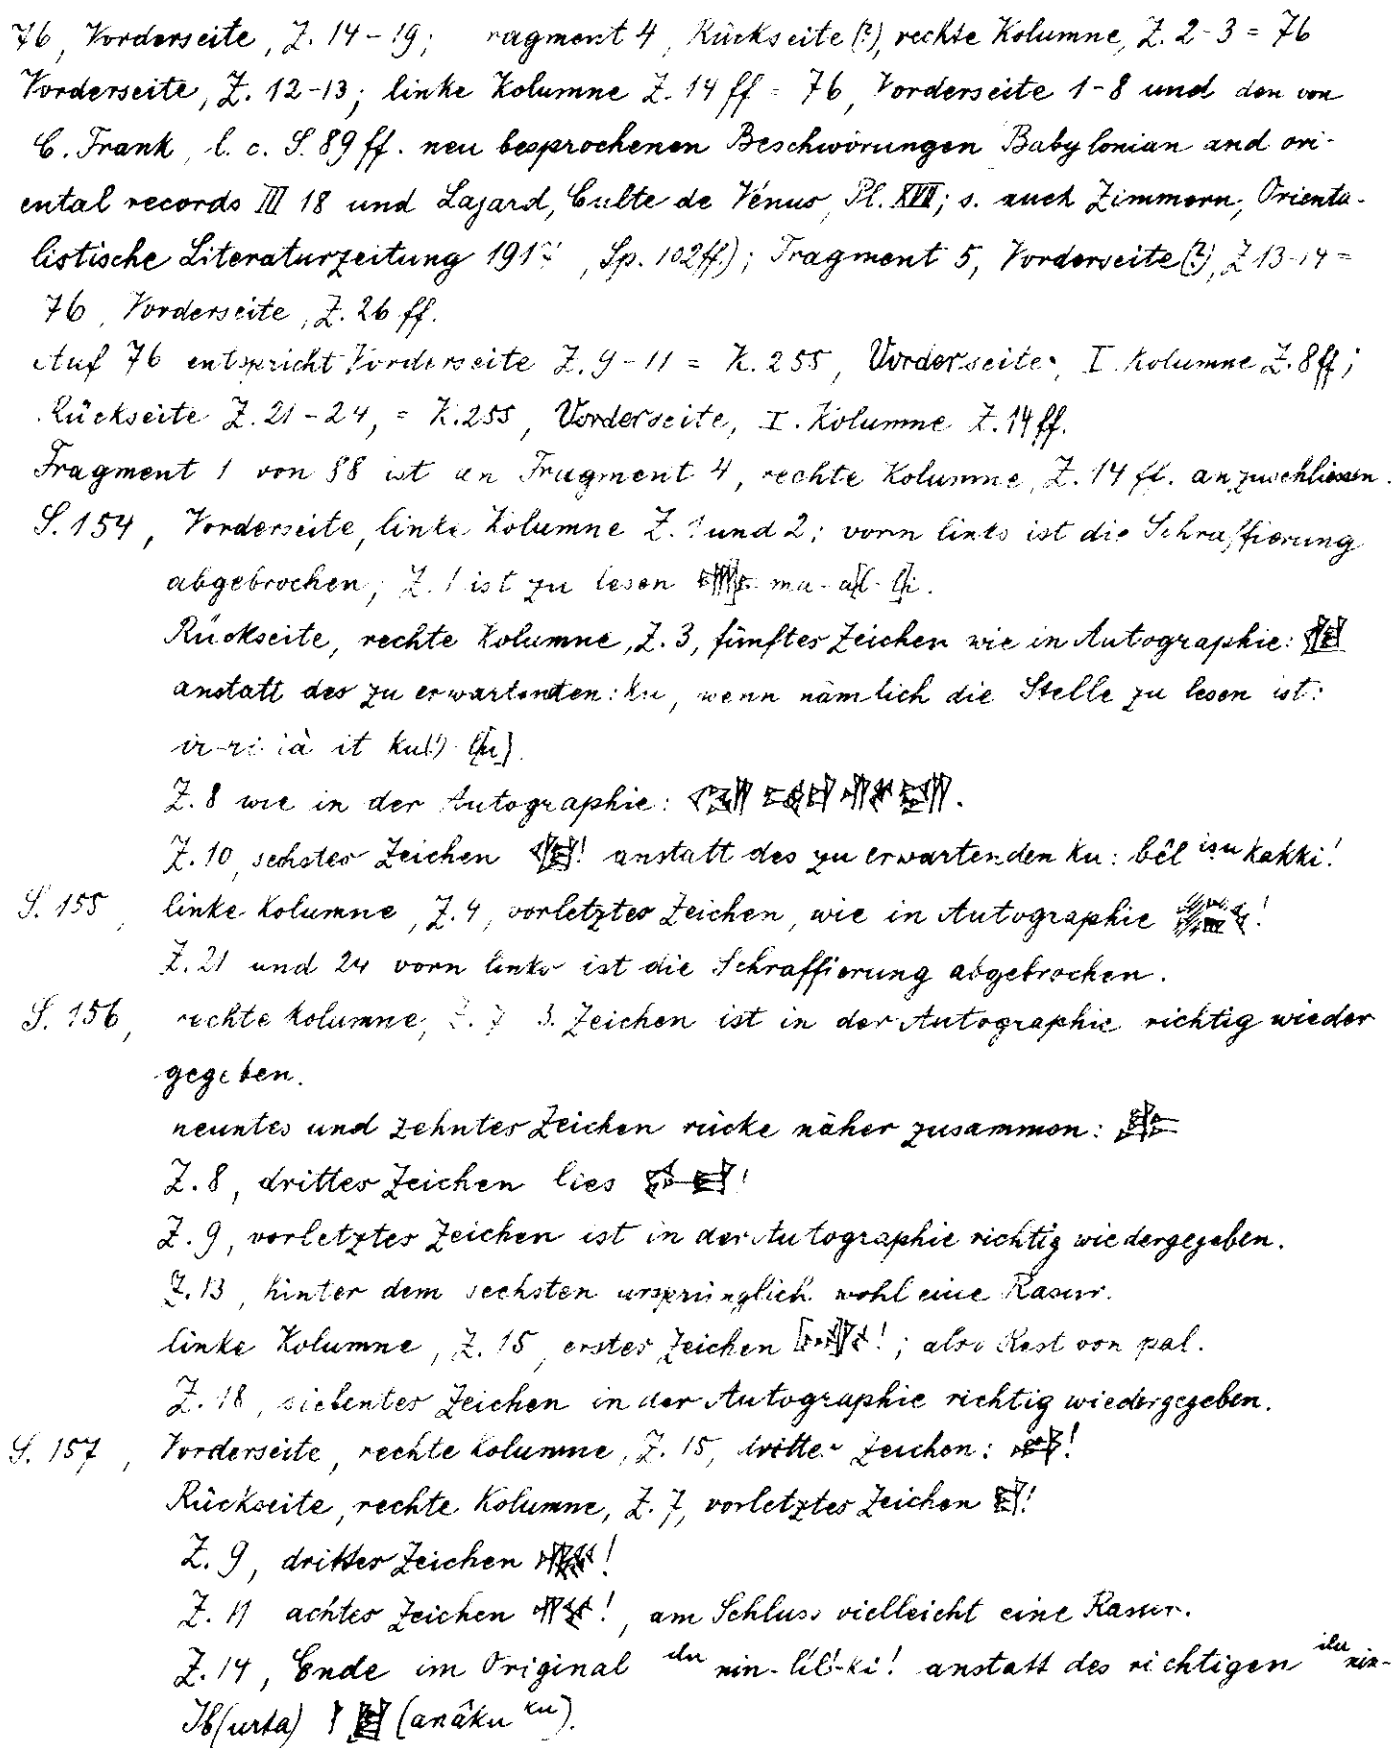 76, Vorderseite, Z. 14-19; ragment 4, Rückseite (?), rechte Kolumne, Z. 2-3 = 76
Vorderseite, Z. 12-13; linke Kolumne Z. 14 ff = 76, Vorderseite 1-8 und den von
C. Frank, l. c. S. 89 ff. neu besprochenen Beschwörungen Babylonian and ori-
ental records III 18 und Lajard, Culte de Vénus, Pl. XVII; s. auch Zimmern, Orienta-
listische Literaturzeitung 191 , Sp. 102 ff); Fragment 5, Vorderseite (?), Z 13-14 =
76, Vorderseite, Z. 26 ff.
Auf 76 entspricht Vorderseite Z. 9-11 = K. 255, Vorderseite, I. Kolumne Z. 8 ff;
Rückseite Z. 21-24, = K. 255, Vorderseite, I. Kolumne Z. 14 ff.
Fragment 1 von 88 ist an Fragment 4, rechte Kolumne, Z. 14 ff. anzuschliessen.
S. 154, Vorderseite, linke Kolumne Z. 1 und 2; vorn links ist die Schraffierung
abgebrochen; Z. 1 ist zu lesen ma-a[l-l]i.
Rückseite, rechte Kolumne, Z. 3, fünftes Zeichen wie in Autographie:
anstatt des zu erwartenden: ku, wenn nämlich die Stelle zu lesen ist:
it ku(!)
Z. 8 wie in der Autographie:
Z. 10, sechstes Zeichen ! anstatt des zu erwartenden ku: bêl iṣu kakki!
S. 155, linke Kolumne, Z. 4, vorletztes Zeichen, wie in Autographie !
Z. 21 und 24 vorn links ist die Schraffierung abgebrochen.
S. 156, rechte Kolumne, Z. 7 3. Zeichen ist in der Autographie richtig wieder
gegeben.
neuntes und zehntes Zeichen rücke näher zusammen:
Z. 8, drittes Zeichen lies !
Z. 9, vorletztes Zeichen ist in der Autographie richtig wiedergegeben.
Z. 13, hinter dem sechsten ursprünglich wohl eine Rasur.
linke Kolumne, Z. 15, erstes Zeichen !; also Rest von pal.
Z. 18, siebentes Zeichen in der Autographie richtig wiedergegeben.
S. 157, Vorderseite, rechte Kolumne, Z. 15, drittes Zeichen: !
Rückseite, rechte Kolumne, Z. 7, vorletztes Zeichen !
Z. 9, drittes Zeichen !
Z. 11 achtes Zeichen !, am Schluss vielleicht eine Rasur.
Z. 14, Ende im Original ilu nin-líl-ki! anstatt des richtigen ilu nin-
Ib(urta) (anâku ku).